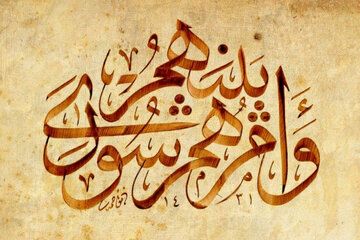 وَأَمْرُهُمْ شُورَىٰ بَيْنَهُمْ
١٤٣١